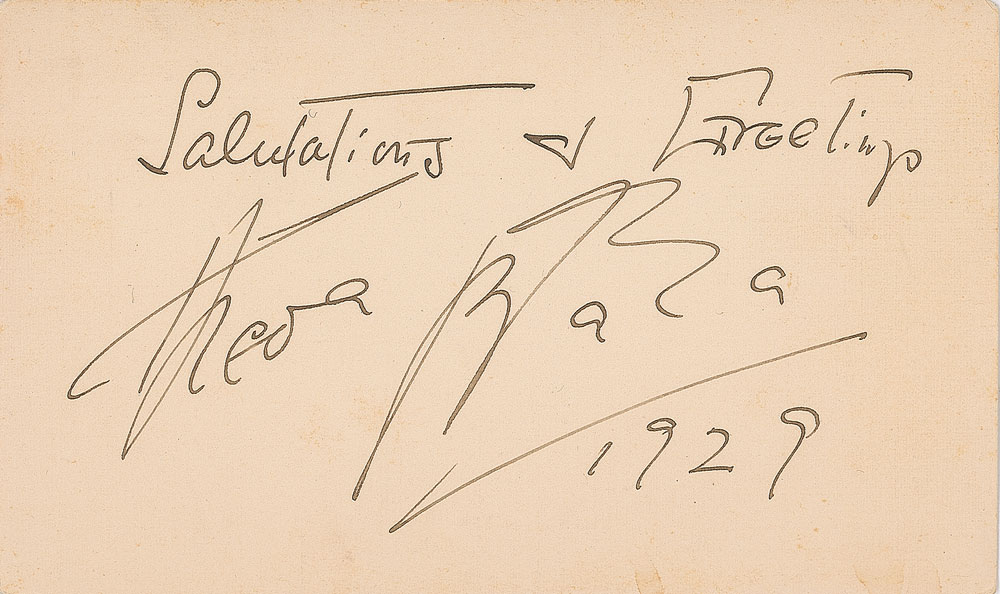 Salutations & Greetings
Theda Bara
1929